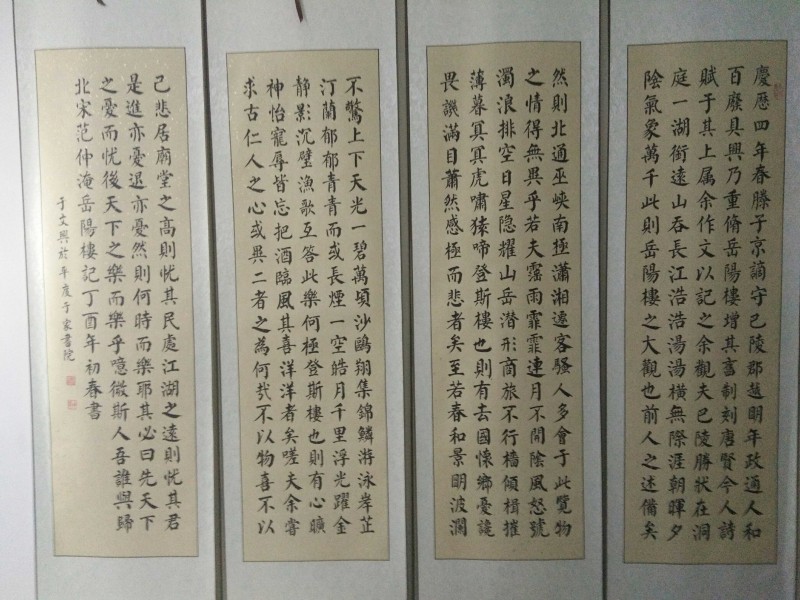 慶歷四年春滕子京謫守巴陵郡越明年政通人和
百廢具興乃重脩岳陽樓增其舊制刻唐賢今人詩
賦于其上属余作文以記之余觀夫巴陵勝状在洞
庭一湖銜遠山吞長江浩浩湯湯橫無際涯朝暉夕
陰氣象萬千此則岳陽樓之大觀也前人之述備矣
然則北通巫峽南極瀟湘遷客騷人多會于此覽物
之情得無異乎若夫霪雨霏霏連月不開陰風怒號
濁浪排空日星隐耀山岳潜形商旅不行檣傾楫摧
薄暮冥冥虎嘯猿啼登斯樓也則有去國懷鄉憂讒
畏譏滿目蕭然感極而悲者矣至若春和景明波瀾
不驚上下天光一碧萬頃沙鷗翔集錦鱗游泳岸芷
汀蘭郁郁青青而或長煙一空皓月千里浮光躍金
静影沉璧漁歌互答此樂何極登斯樓也則有心曠
神怡寵辱皆忘把酒臨風其喜洋洋者矣嗟夫余嘗
求古仁人之心或異二者之為何哉不以物喜不以
己悲居廟堂之高則忧其民處江湖之遠則忧其君
是進亦憂退亦憂然則何時而樂耶其必曰先天下
之憂而忧後天下之樂而樂乎噫微斯人吾誰與歸
北宋范仲淹岳陽樓記丁酉年初春書
于文興於平度于家書院